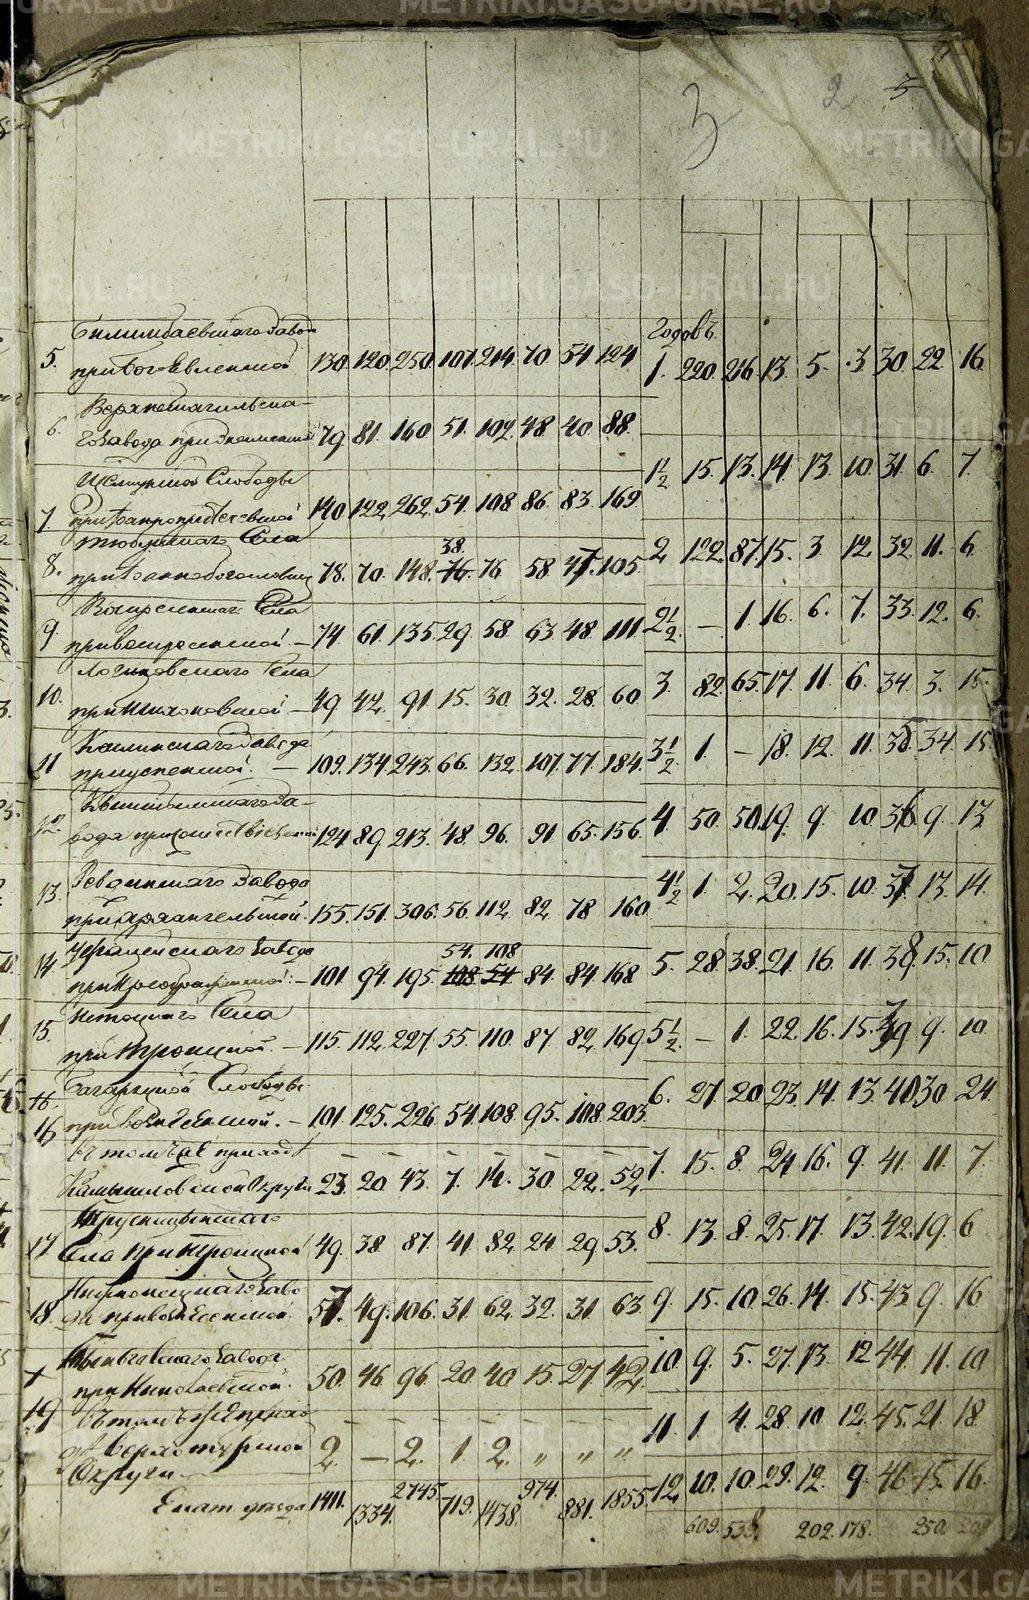 METRIKI.GASO-URAL.RU
3 2 5
Билимбаевскаго завода Годовъ
5. при Богоявленской 130. 120. 250. 107. 214. 70. 54. 124 1. 220. 216. 13. 5. 3 30. 22. 16
Верхнетагильска-
6. го завода при Знаменской 79. 81. 160. 51. 102. 48. 40. 88.
1½ 15. 13. 14. 13. 10. 31. 6. 7.
Слободы
7. 140. 122. 262. 54. 108. 86. 83. 169
Села 38. 2. 122. 87. 15. 3. 12. 32. 11. 6.
8. при Иоанно Богословской 78. 70. 148. 76. 76 58. 47. 105
Воскресенскаго Села
9. при Воскресенской. – 74. 61. 135. 29. 58. 63. 48. 111. 2½. – 1. 16. 6. 7. 33. 12. 6.
Логиновскаго Села
10. – 49. 42. 91. 15. 30. 32. 28. 60 3. 82. 65. 17. 11. 6. 34. 3. 15.
завода
11 при Успенской. – 109. 134. 243. 66. 132. 107. 77. 184. 3½. 1. – 18. 12. 11. 35. 34. 15.
за-
12. вода при 124 89. 213. 48. 96. 91. 65. 156. 4. 50. 50. 19. 9. 10. 36. 9. 13
Ревдинскаго завода
13. при Архангельской. 155. 151. 306. 56. 112. 82. 78. 160 4½ 1. 2. 20. 15. 10. 37. 13. 14.
завода 54. 108
14. при Преображенской. – 101. 94. 195. 108 54 84. 84. 168 5. 28. 38. 21. 16. 11. 38. 15. 10
Села
15. при Троицкой. – 115. 112. 227. 55. 110. 87. 82. 169 5½. – 1. 22. 16. 15. 39. 9. 10
Слободы
16 при Вознесенской. – 101. 125. 226. 54. 108. 95. 108. 203. 6. 27. 20. 23. 14. 13. 40. 30. 24.
въ томъ же приходе – – – – – – – –
Камышловской округи 23. 20. 43. 7. 14. 30. 22. 52. 7. 15. 8. 24. 16. 9. 41. 11. 7.
17 Села при Троицкой 49. 38. 87. 41. 82. 24. 29. 53. 8. 13. 8. 25. 17. 13. 42. 19. 6
18. да при Вознесенской. 57. 49. 106. 31. 62. 32. 31. 63. 9. 15. 10. 26. 14. 15. 43. 9. 16
завода
19 при Николаевской. 50. 46. 96. 20. 40. 15. 27. 42. 10. 9. 5. 27. 13. 12 44. 11. 10
въ томъ – – – – – – 11. 1 4. 28. 10. 12. 45. 21. 18.
Верхотурской 2. – 2. 1. 2. „ „ „
Округи – 12. 10. 10. 29. 12. 9. 46. 15. 16.
1411. 1334. 2745. 719. 1438. 974. 881. 1855.
609. 538. 202. 178. 250. 209